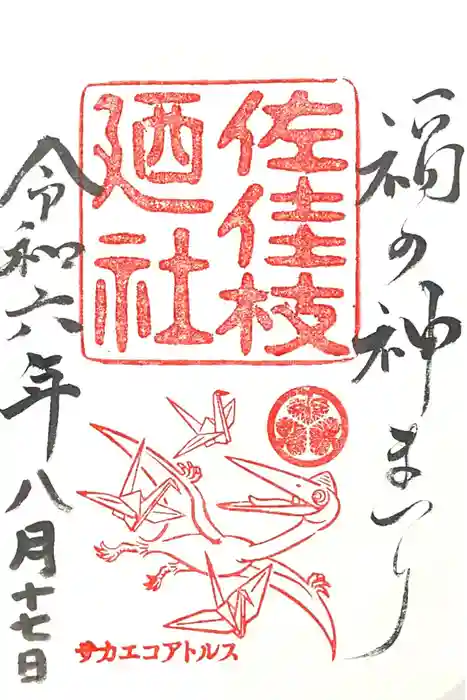 福の神まつり
佐佳枝
廼社
令和六年八月十七日
サカエコアトルス